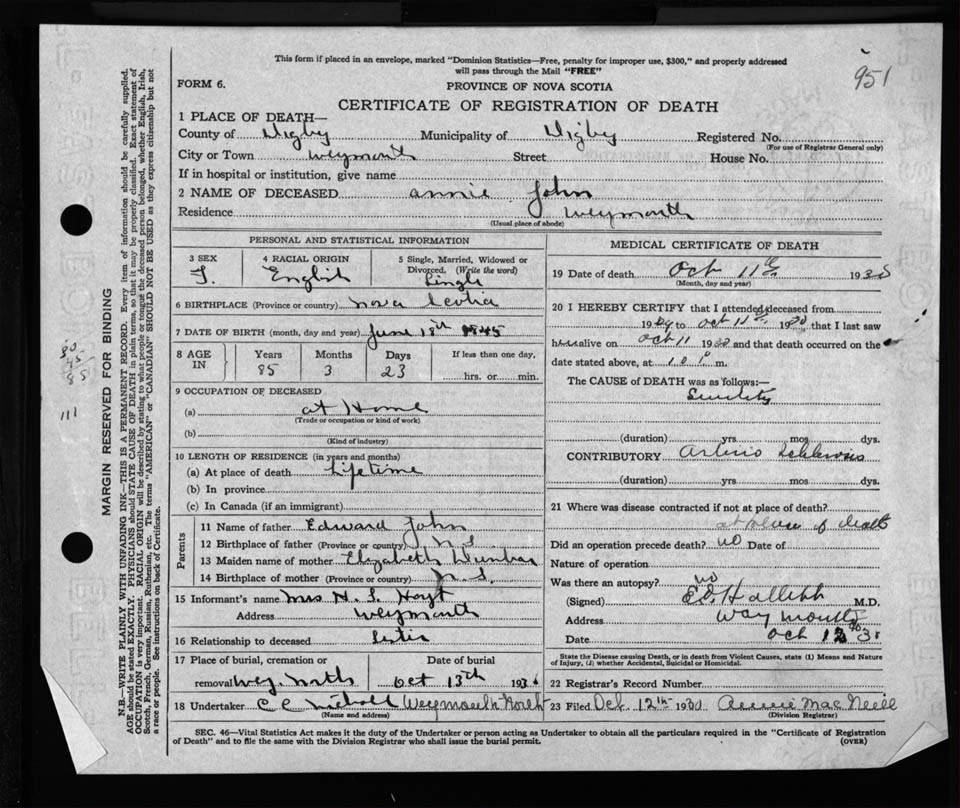 This form if placed in an envelope, marked "Dominion Statistics—Free, penalty for improper use, $300," and properly addressed
will pass through the Mail "FREE"
951
FORM 6.
PROVINCE OF NOVA SCOTIA
CERTIFICATE OF REGISTRATION OF DEATH
1 PLACE OF DEATH—
County of Digby Municipality of Digby Registered No.
(For use of Registrar General only)
City or Town Weymouth Street House No.
If in hospital or institution, give name
2 NAME OF DECEASED Annie John
Residence Weymouth
(Usual place of abode)
PERSONAL AND STATISTICAL INFORMATION
3 SEX 4 RACIAL ORIGIN 5 Single, Married, Widowed or
Divorced. (Write the word)
F. English Single
6 BIRTHPLACE (Province or country) Nova Scotia
7 DATE OF BIRTH (month, day and year) June 18th 1845
8 AGE IN Years Months Days If less than one day,
85 3 23 hrs. or min.
9 OCCUPATION OF DECEASED
(a) at Home
(Trade or occupation or kind of work)
(b)
(Kind of industry)
10 LENGTH OF RESIDENCE (in years and months)
(a) At place of death Lifetime
(b) In province
(c) In Canada (if an immigrant)
Parents
11 Name of father Edward John
12 Birthplace of father (Province or country) N.S.
13 Maiden name of mother Elizabeth
14 Birthplace of mother (Province or country) N.S.
15 Informant's name Mrs N. S. Hoyt
Address Weymouth
16 Relationship to deceased Sister
17 Place of burial, cremation or Date of burial
removal Wey. North Oct 13th 193
18 Undertaker C C Nichols Weymouth North
(Name and address)
MEDICAL CERTIFICATE OF DEATH
19 Date of death Oct 11th 193
(Month, day and year)
20 I HEREBY CERTIFY that I attended deceased from
1929 to Oct 11th 1930 that I last saw
h alive on Oct 11 1930 and that death occurred on the
date stated above, at m.
The CAUSE of DEATH was as follows:—
Senility
(duration) yrs. mos. dys.
CONTRIBUTORY Arterio Sclerosis
(duration) yrs. mos. dys.
21 Where was disease contracted if not at place of death?
at place of death
Did an operation precede death? no Date of
Nature of operation
Was there an autopsy? no
(Signed) M.D.
Address Weymouth
Date Oct 12
State the Disease causing Death, or in death from Violent Causes, state (1) Means and Nature
of Injury, (2) whether Accidental, Suicidal or Homicidal.
22 Registrar's Record Number
23 Filed Oct. 12th 1930 Annie MacNeill
(Division Registrar)
SEC. 46—Vital Statistics Act makes it the duty of the Undertaker or person acting as Undertaker to obtain all the particulars required in the "Certificate of Registration
of Death" and to file the same with the Division Registrar who shall issue the burial permit.
(OVER)
MARGIN RESERVED FOR BINDING
N.B.—WRITE PLAINLY WITH UNFADING INK—THIS IS A PERMANENT RECORD. Every item of information should be carefully supplied.
AGE should be stated EXACTLY. PHYSICIANS should STATE CAUSE OF DEATH in plain terms, so that it may be properly classified. Exact statement of
OCCUPATION is very important. RACIAL ORIGIN will be described by stating to what people or tongue the deceased person belonged, whether English, Irish,
Scotch, French, German, Russian, Ruthenian, etc. The terms "AMERICAN" or "CANADIAN" SHOULD NOT BE USED as they express citizenship but not
a race or people. See instructions on back of Certificate.
30
45
85
111